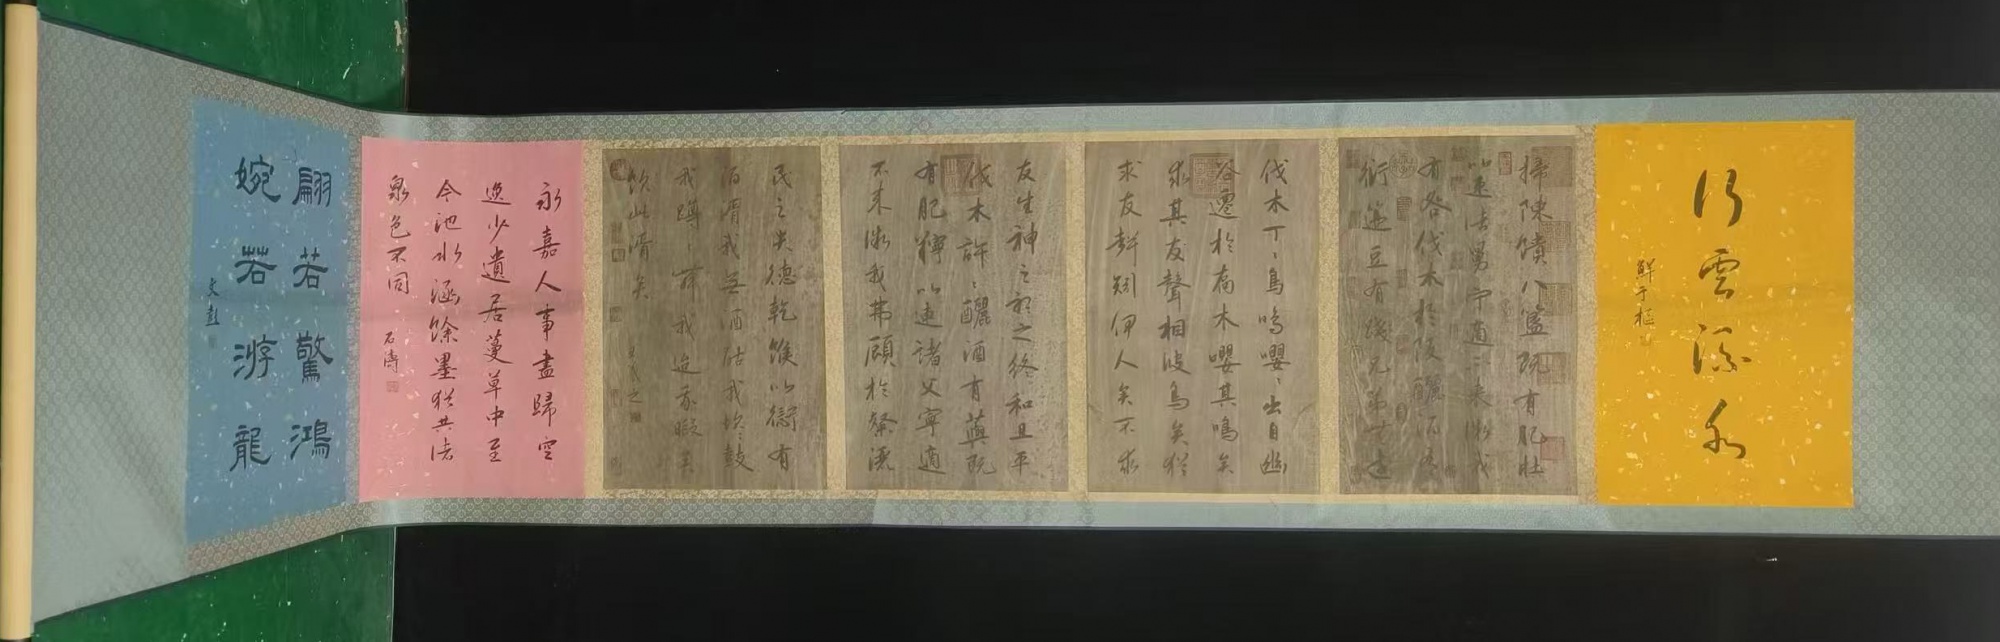 行雲流水
鮮于樞
掃陳饋八簋既有肥牡
以速諸舅寧適不來微我
有咎伐木於阪釃酒有
衍籩豆有踐兄弟無遠
伐木丁丶鳥鳴嚶丶出自幽
谷遷於喬木嚶其鳴矣
求其友聲相彼鳥矣猶
求友聲矧伊人矣不求
友生神之聽之終和且平
伐木許丶釃酒有藇既
有肥羜以速諸父寧適
不來微我弗顧於粲洒
民之失德乾餱以愆有
酒湑我無酒酤我坎丶鼓
我蹲丶舞我迨我暇矣
飲此湑矣
王羲之
永嘉人事盡歸空
逸少遺居蔓草中至
今池水涵餘墨猶共諸
泉色不同 石濤
翩若驚鴻
婉若游龍
文彭